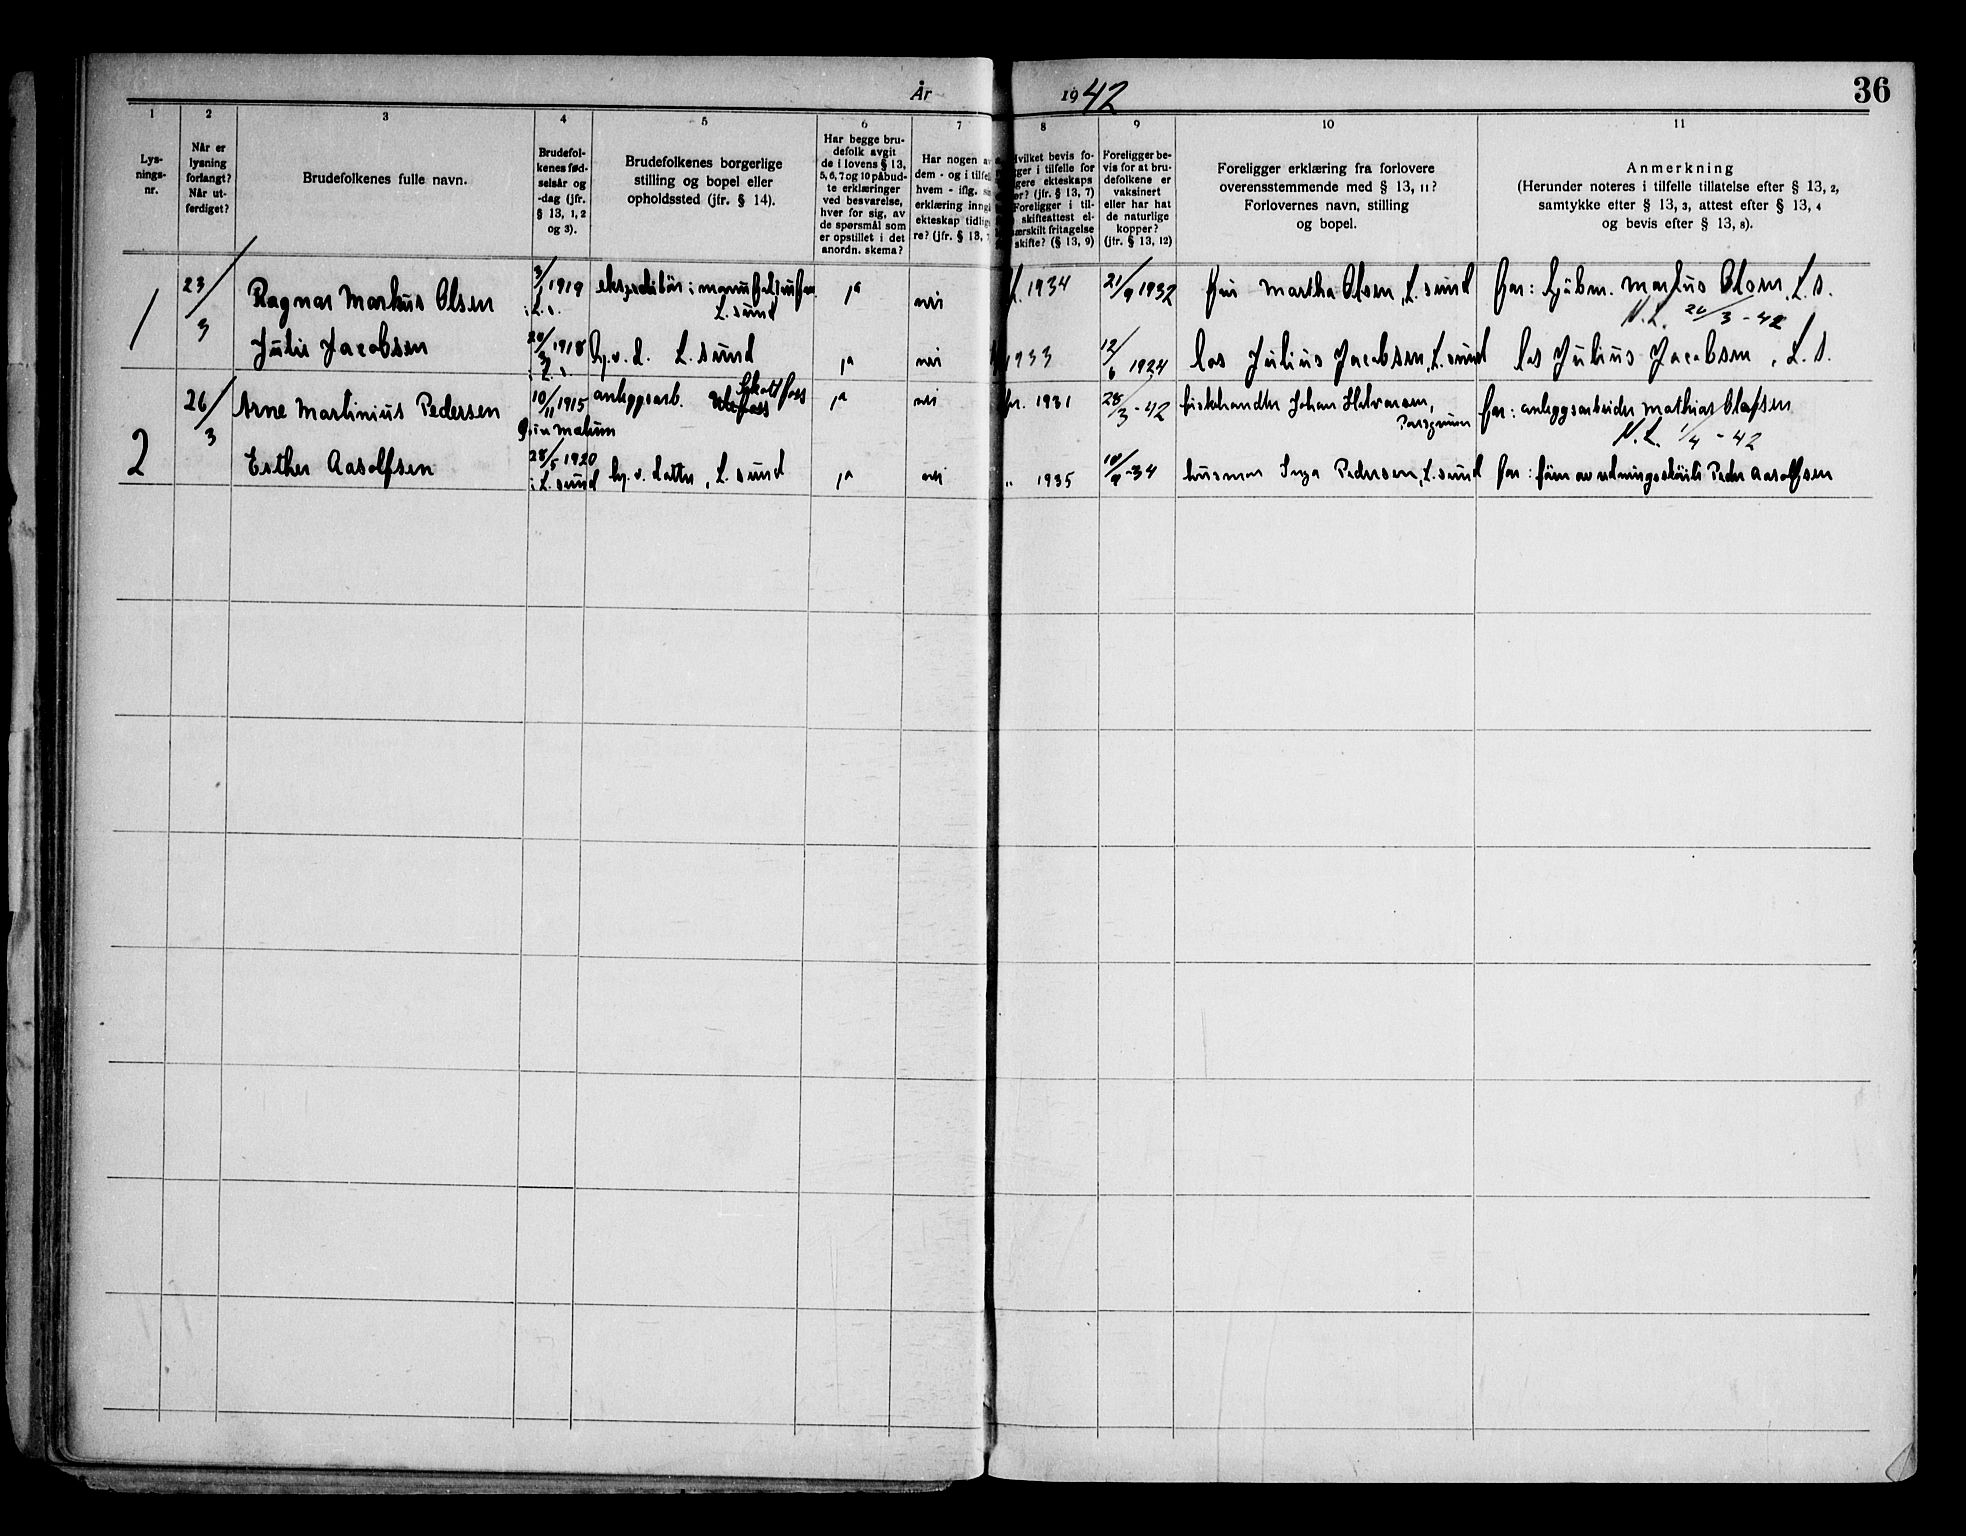 År 1942
36
1
2
3
4
5
6
7
8
9
10
11
Lys-
nings-
nr.
Når er
lysning
forlangt?
Når ut-
ferdiget?
Brudefolkenes fulle navn.
Brudefol-
kenes fød-
selsår og
-dag (jfr.
§ 13, 1, 2
og 3).
Brudefolkenes borgerlige
stilling og bopel eller
opholdssted (jfr. § 14).
Har begge bru-
defolk avgit
de i lovens § 13,
5, 6, 7 og 10 påbud-
te erklæringer
ved besvarelse,
hver for sig, av
de spørsmål som
er opstillet i det
anordn. skema?
Har nogen av
dem - og i tilfelle
hvem - iflg.
erklæring inngå
ekteskap tidlige
re? (jfr. § 13, 7
Hvilket bevis fo-
gger i tilfelle for
gere ekteskaps
ør? (jfr. § 13, 7)
Foreligger i til-
skifteattest el-
særskilt fritagelse
skifte? (§ 13, 9)
Foreligger be-
vis for at bru-
defolkene er
vaksinert
eller har hat
de naturlige
kopper?
(jfr. § 13, 12)
Foreligger erklæring fra forlovere
overensstemmende med § 13, 11?
Forlovernes navn, stilling
og bopel.
Anmerkning
(Herunder noteres i tilfelle tillatelse efter § 13, 2,
samtykke efter § 13, 3, attest efter § 13, 4
og bevis efter § 13, 8).
1
23/3
Ragnar Markus Olsen
3/ 1919
i L. s.
i manufaktur
L. sund
ja
nei
1934
21/9 1932
Martha Olsen, L. sund
far: Markus Olsen, L. s.
N. L. 26/3 - 42
Julie Jacobsen
20/3 1918
i L. s
hj. v. d. L. sund
ja
nei
1933
12/6 1924
los Julius Jacobsen, L. sund
los Julius Jacobsen, L. s.
2
26/3
Arne Martinius Pedersen
10/11 1915
anleggsarb.
ja
nei
1931
28/3 - 42
fiskehandler Johan Halvorsen,
Porsgrunn
far: anleggsarbeider Mathias Olafsen
N. L. 1/4 - 42
Esther Aasolfsen
28/5 1920
i L. sund
hj. v. datter, L. sund
ja
nei
" 1935
18/9 - 34
husmor Inga Pedersen, L. sund
far: Peder Aasolfsen